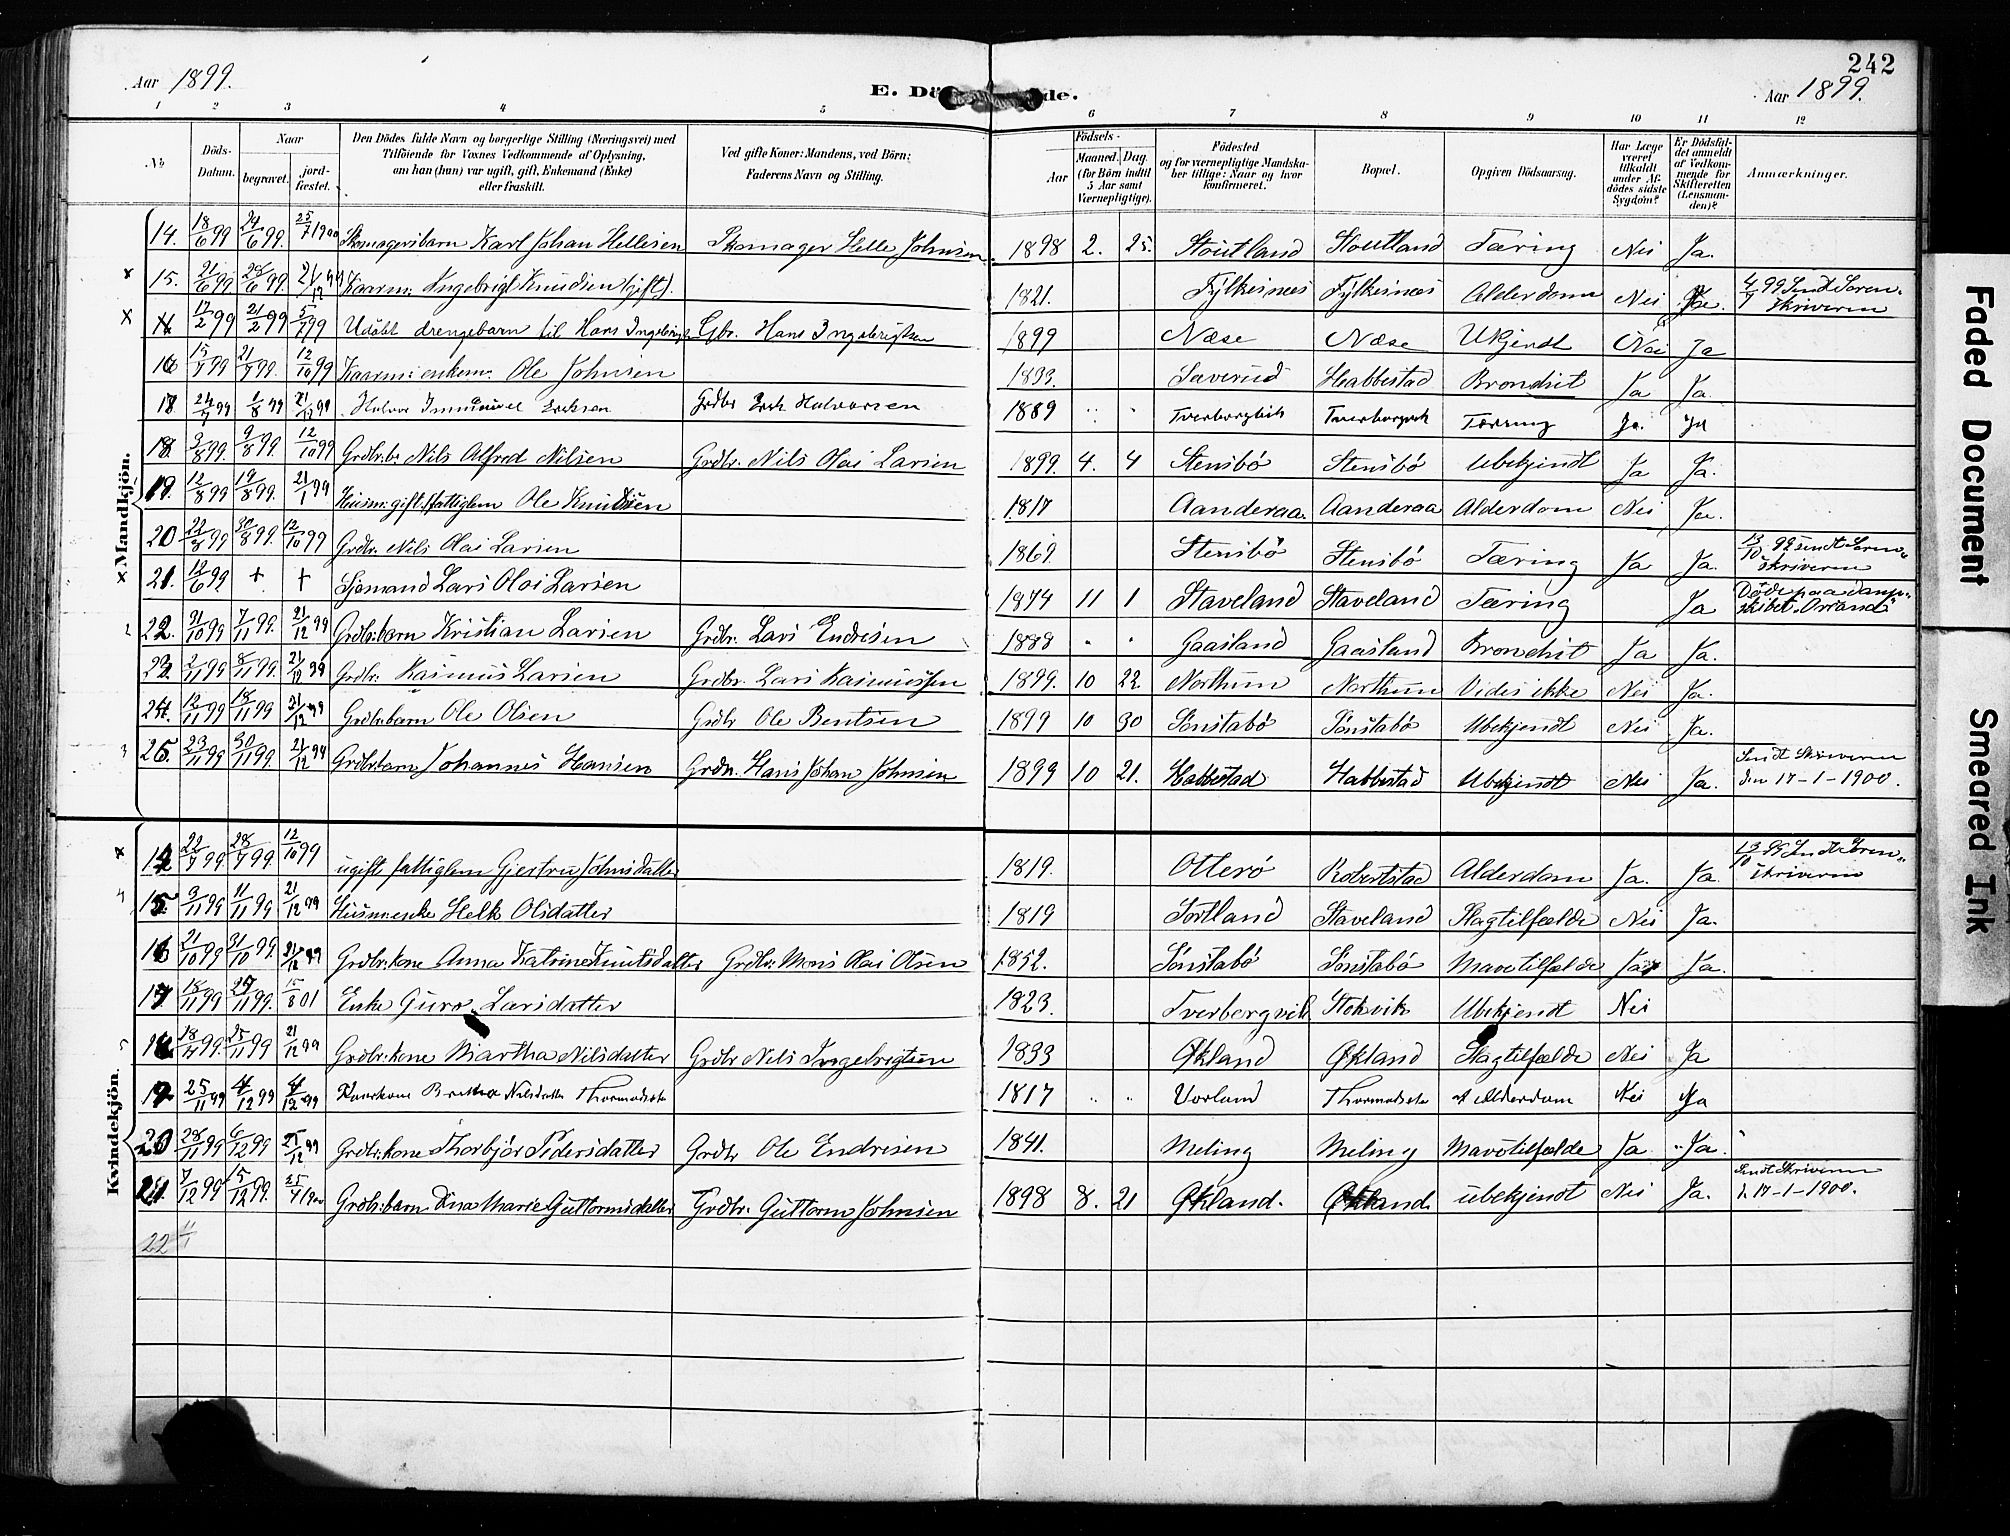 242
Aar 1899.
E. Dö de.
Aar 1899.
1 2 3 4 5 6 7 8 9 10 11 12
No
Döds-Datum.
Naar
begravet.
jord-fæstet.
Den Dödes fulde Navn og borgerlige Stilling (Næringsvei) med
Tilföiende for Voxnes Vedkommende af Oplysning,
om han (hun) var ugift, gift, Enkemand (Enke)
eller fraskilt.
Ved gifte Koner: Mandens, ved Börn:
Faderens Navn og Stilling.
Födsels-
Aar
Maaned. Dag.
(for Börn indtil 5 Aar samt Værnepligtige).
Födested
og for værnepligtige Mandska-
ber tillige: Naar og hvor
konfirmeret.
Bopæl.
Opgiven Dödsaarsag.
Har Læge været tilkaldt under Af-dödes sidste Sygdom?
Er Dödsfal-det anmeldt af Vedkom-mende for Skifteretten (Lensman-den)?
Anmærkninger.
Mandkjön.
14. 18/6 99 24/6 99. 25/7 1900 Skomagersbarn Karl Johan Hellesen Skomager Helle Johnsen 1898 2. 25. Stoutland Stoutland Tæring Nei Ja.
15. 21/6 99 28/6 99. 21/12 99 Kaarm: Ingebrigt Knudsen (gift). 1821. Fylkesnæs Fylkesnæs Alderdom Nei Ja. 4/7 99 Sendt Soren-
skriveren
17/2 99 21/2 99 5/7 99 Udøbt drengebarn til Hans Ingebrigts Gbr. Hans Ingebrigtsen 1899 Næse Næse Ukjendt Nei Ja
16 15/7 99 21/7 99. 12/10 99 Kaarm: enkem: Ole Johnsen 1833. Saverud Habbestad Bronchit Ja Ja.
18 24/7 99 1/8 99 21/12 99 Halvor Immanuel Eriksen Grdbr Erik Halvorsen 1889 " " Tverborgvik Tverborgvik Tærring Ja. Ja
18. 3/8 99. 9/8 99. 12/10 99 Grdbr:b: Nils Alfred Nilsen Grdbr. Nils Olai Larsen 1899. 4. 4 Stensbö Stensbö Ubekjendt Ja Ja.
19. 12/8 99 19/8 99. 21/1 99 Husm: gift: fattiglem Ole Knudsen 1817 Aanderaa. Aanderaa Alderdom Nei Ja.
20 22/8 99 30/8 99. 12/10 99 Grdbr: Nils Olai Larsen 1869. Stensbö Stensbö Tæring Ja Ja. 13/10 99 sendt Soren-
skriveren
21. 12/6 99 + + Sjømand Lars Olai Larsen 1874 11 1 Staveland Staveland Tæring Ja Döde paa damp-
skibet "Orland"
22. 31/10 99 7/11 99. 21/12 99 Grdbr:barn Kristian Larsen Grdbr. Lars Endresen 1888 " " Gaasland Gaasland Bronchit Ja Ja.
23. 2/11 99 8/11 99. 21/12 99 Grdbr: Rasmus Larsen Grdbr. Lars Rasmussen 1899. 10 22. Northun Northun Vides ikke Nei Ja.
24. 12/11 99 18/11 99 21/12 99 Grdbr:barn Ole Olsen Grdbr Ole Bentsen 1899 10 30 Sønstabø Sønstabø Ubekjendt Nei Ja.
25. 23/11 99 30/11 99. 21/12 99 Grdbr:barn Johannes Hansen Grdbr. Hans Johan Johnsen 1899 10 21. Habbestad Habbestad Ubekjendt Nei Ja. Sendt Skriveren
den 17-1-1900.
Kvindekjön.
14 22/7 99 28/7 99 12/10 99 ugift fattiglem Gjertru Johnsdatter 1819. Otterø Robertstad Alderdom Ja. Ja. 13/10 99 Sendt Soren-
skriveren
15. 3/11 99 11/11 99 21/12 99 Husm:enke Helk Olsdatter 1819 Sortland Staveland Slagtilfælde Nei Ja.
16 21/10 99 31/10 99. 21/12 99 Grdbr:kone Anna Katrine Knutsdatter Grdbr: Mons Olai Olsen 1852. Sønstabø Sønstabø Mavetilfælde Ja Ja.
17 18/11 99 25/11 99. 15/8 01 Enke Guro Larsdatter 1823. Tverborgvik Stokvik Ubekjendt Nei
18 18/11 99. 25/11 99 21/12 99 Grdbr:kone Martha Nilsdatter Grdbr Nels Ingebrigtsen 1833 Økland Økland Slagtilfælde Nei Ja
19 25/11 99 4/12 99 4/12 99 Kaarkone Brita Nilsdatter Thormodsete 1817 " " Vorland Thormodsete af Alderdom Nei Ja
20 28/11 99 6/12 99 21/12 99 Grdbr:kone Thorbjør Pedersdatter Grdbr Ole Endresen 1841. Meling Meling Mavetilfælde Ja Ja.
21. 7/12 99 15/12 99. 25/7 1900 Grdbr:barn Ina Marie Guttormsdatter Grdbr. Guttorm Johnsen 1898 8. 21 Økland. Økland ubekjendt Nei Ja. Sendt Skriveren
d. 17-1-1900.
22
Faded Document
Smeared Ink